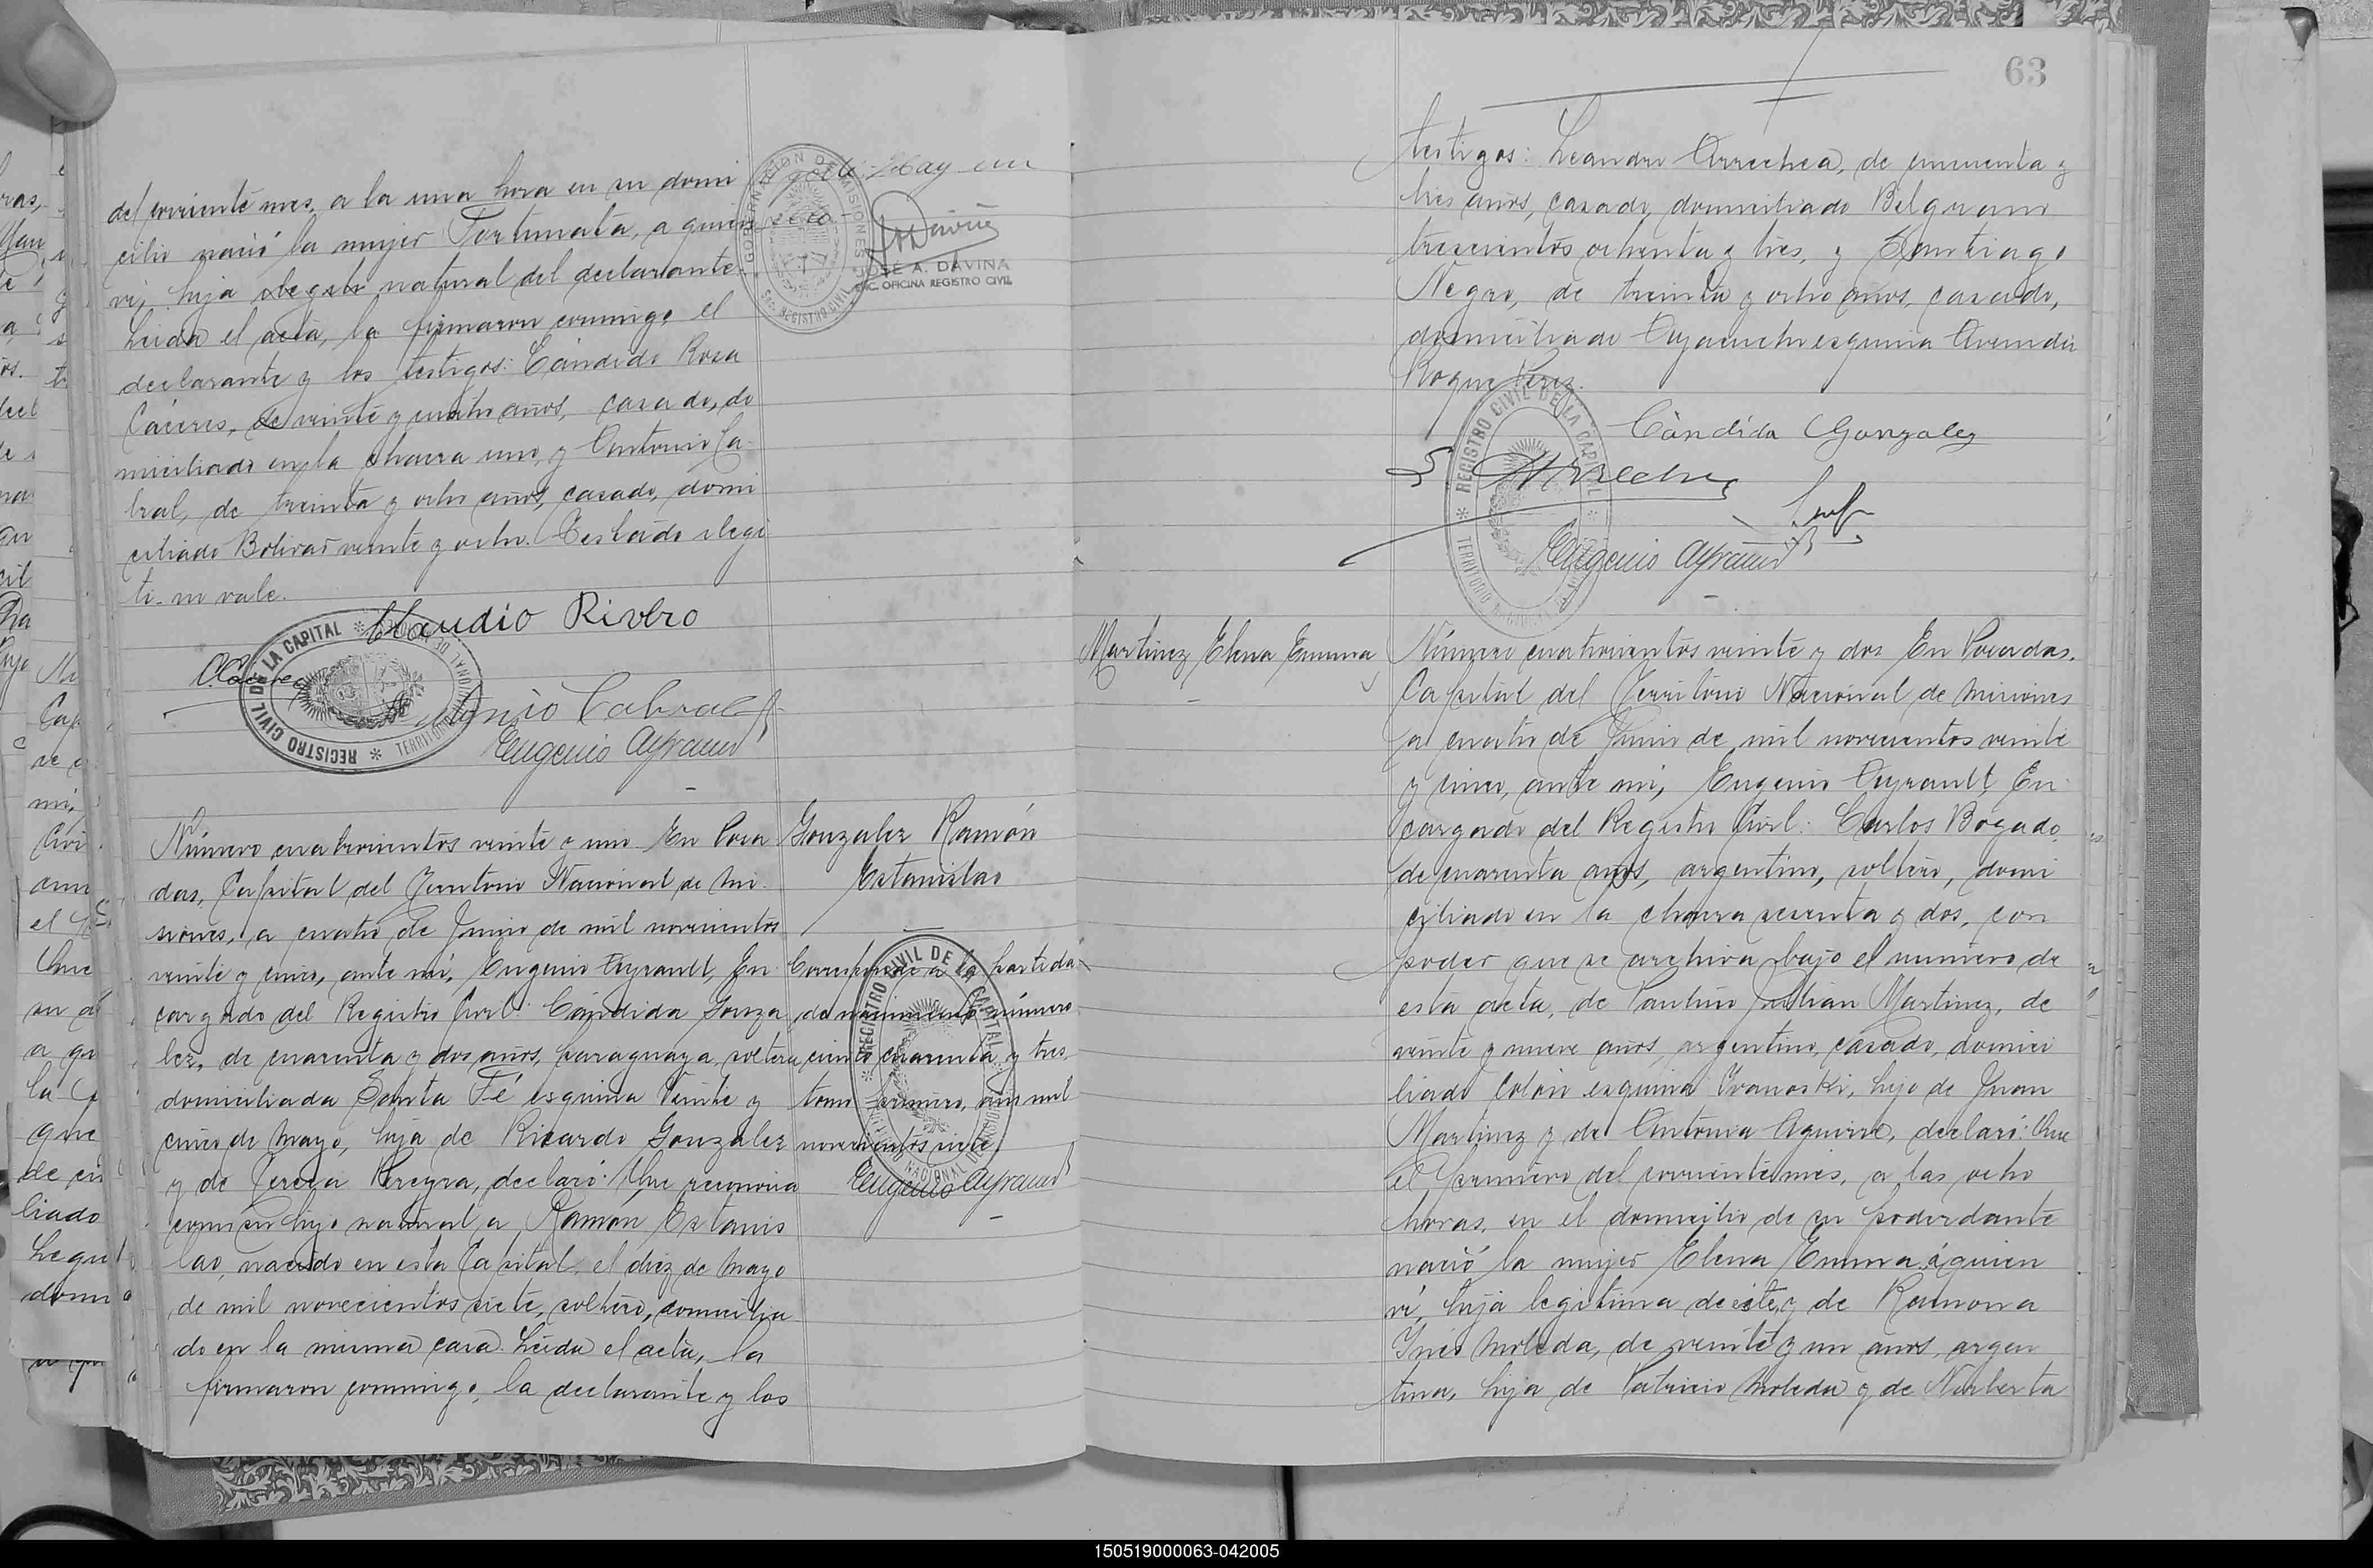 del corriente mes, a la una hora en su domi
cilio nació la mujer Fortunata, a quien
ví, hija natural del declarante.
Leida el acta, la firmaron conmigo, el
declarante y los testigos: Cándido Rosa
Cáceres, de veinte y cuatro años, casado, do
miciliado en la chacra uno, y Antonio Ca
bral, de treinta y ocho años, casado, domi
ciliado Bolivar veinte y ocho. Testado ilegi
ti- no vale.
JOSÉ A. DAVIÑA
ENC. OFICINA REGISTRO CIVIL
Claudio Rivero
C. Caceres
Antonio Cabral
Eugenio Ayrault
REGISTRO CIVIL DE LA CAPITAL
Número cuatrocientos veinte y uno En Posa
das, Capital del Territorio Nacional de Mi
siones, a cuatro de Junio de mil novecientos
veinte y cinco, ante mí, Eugenio Ayrault, En
cargado del Registro Civil: Cándida Gonza
lez, de cuarenta y dos años, paraguaya, soltera
domiciliada Santa Fé esquina Veinte y
cinco de Mayo, hija de Ricardo Gonzalez
y de Teresa Pereyra, declaró: Que reconocia
como su hijo natural a Ramón Estanis
lao, nacido en esta Capital, el diez de Mayo
de mil novecientos siete, soltero, domicilia
do en la misma casa. Leida el acta, la
firmaron conmigo, la declarante y los
Gonzalez Ramón
Estanislao
Corresponde a la partida
de nacimiento número
ciento cuarenta y tres,
tomo primero, año mil
novecientos siete.
Eugenio Ayrault
REGISTRO CIVIL DE LA CAPITAL
63
testigos: Leandro Arrechea, de cincuenta y
tres años, casado, domiciliado Belgrano
trescientos ochenta y tres, y Santiago
Negro, de treinta y ocho años, casado,
domiciliado Ayacucho esquina Avenida
Roque Perez.
Cándida Gonzalez
Arrechea
Eugenio Ayrault
REGISTRO CIVIL DE LA CAPITAL
Martinez Elena Emma
Número cuatrocientos veinte y dos En Posadas,
Capital del Territorio Nacional de Misiones
a cuatro de Junio de mil novecientos veinte
y cinco, ante mí, Eugenio Ayrault, En
cargado del Registro Civil: Carlos Bogado,
de cuarenta años, argentino, soltero, domi
ciliado en la chacra sesenta y dos, con
poder que se archiva bajo el número de
esta acta, de Paulino Julián Martinez, de
veinte y nueve años, argentino, casado, domici
liado Colón esquina Ivanoski, hijo de Juan
Martinez y de Antonia Aguirre, declaró: Que
el primero del corriente mes, a las ocho
horas, en el domicilio de su poderdante
nació la mujer Elena Emma, a quien
ví, hija legitima de éste y de Ramona
Inés Moleda, de veinte y un años, argen
tina, hija de Patricio Moleda y de Norberta
150519000063-042005